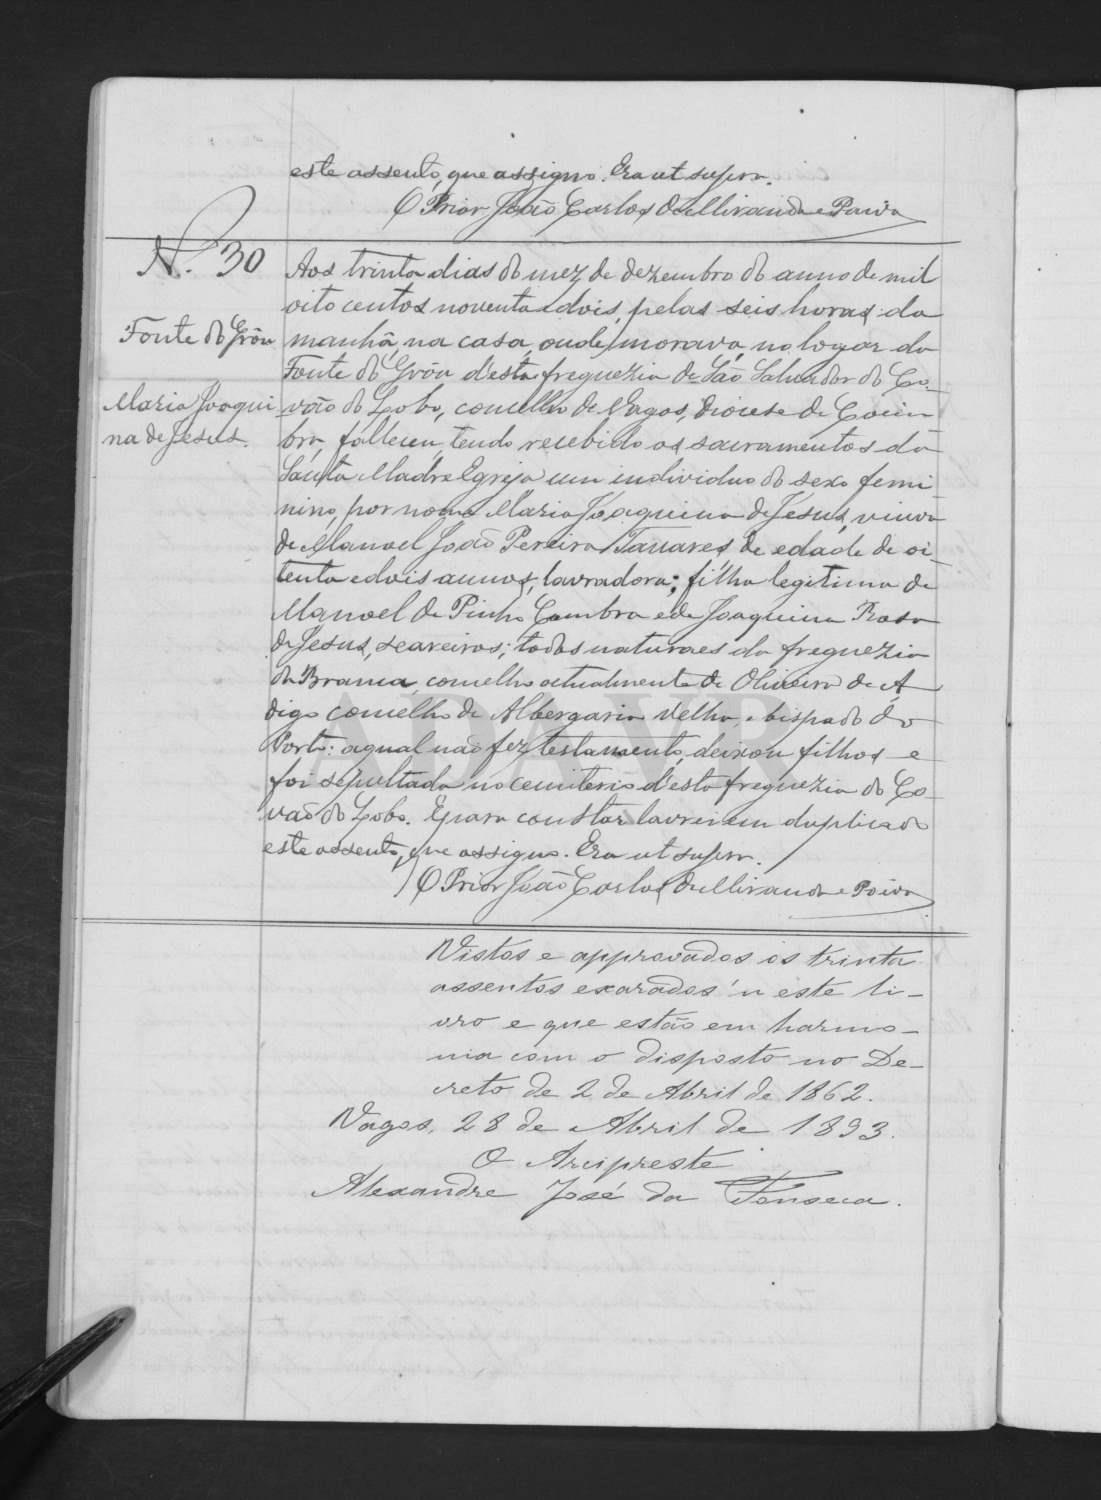 este assento, que assigno. Era ut supra.
O Prior João Carlos de Miranda e Paiva
N. 30
Fonte do Grôu
Maria Joaqui
na de Jesus.
Aos trinta dias do mez de dezembro do anno de mil
oito centos noventa e dois, pelas seis horas da
manhã, na casa, onde morava, no logar da
Fonte do Grôu d'esta freguezia de São Salvador do Co-
vão do Lobo, concelho de Vagos, diocese de Coim
bra, falleceu, tendo recebido os sacramentos da
Santa Madre Egreja um individuo do sexo femi-
nino, por nome Maria Joaquina de Jesus, viuva
de Manoel João Pereira Tavares de edade de oi-
tenta e dois annos, lavradora; filha legitima de
Manoel de Pinho Cambra e de Joaquina Rosa
de Jesus, seareiros; todos naturaes da freguezia
da Branca, concelho actualmente de Oliveira de A
digo concelho de Albergaria Velha, e bispado do
Porto: a qual não fez testamento, deixou filhos e
foi sepultada no cemiterio d'esta freguezia do Co-
vão do Lobo. E para constar lavrei em duplicado
este assento, que assigno. Era ut supra.
O Prior João Carlos de Miranda e Paiva
Vistos e approvados os trinta
assentos exarados n'este li-
vro e que estão em harmo-
nia com o disposto no De-
creto de 2 de Abril de 1862.
Vagos, 28 de Abril de 1893.
O Arcipreste
Alexandre José da Fonseca.
ADAVR